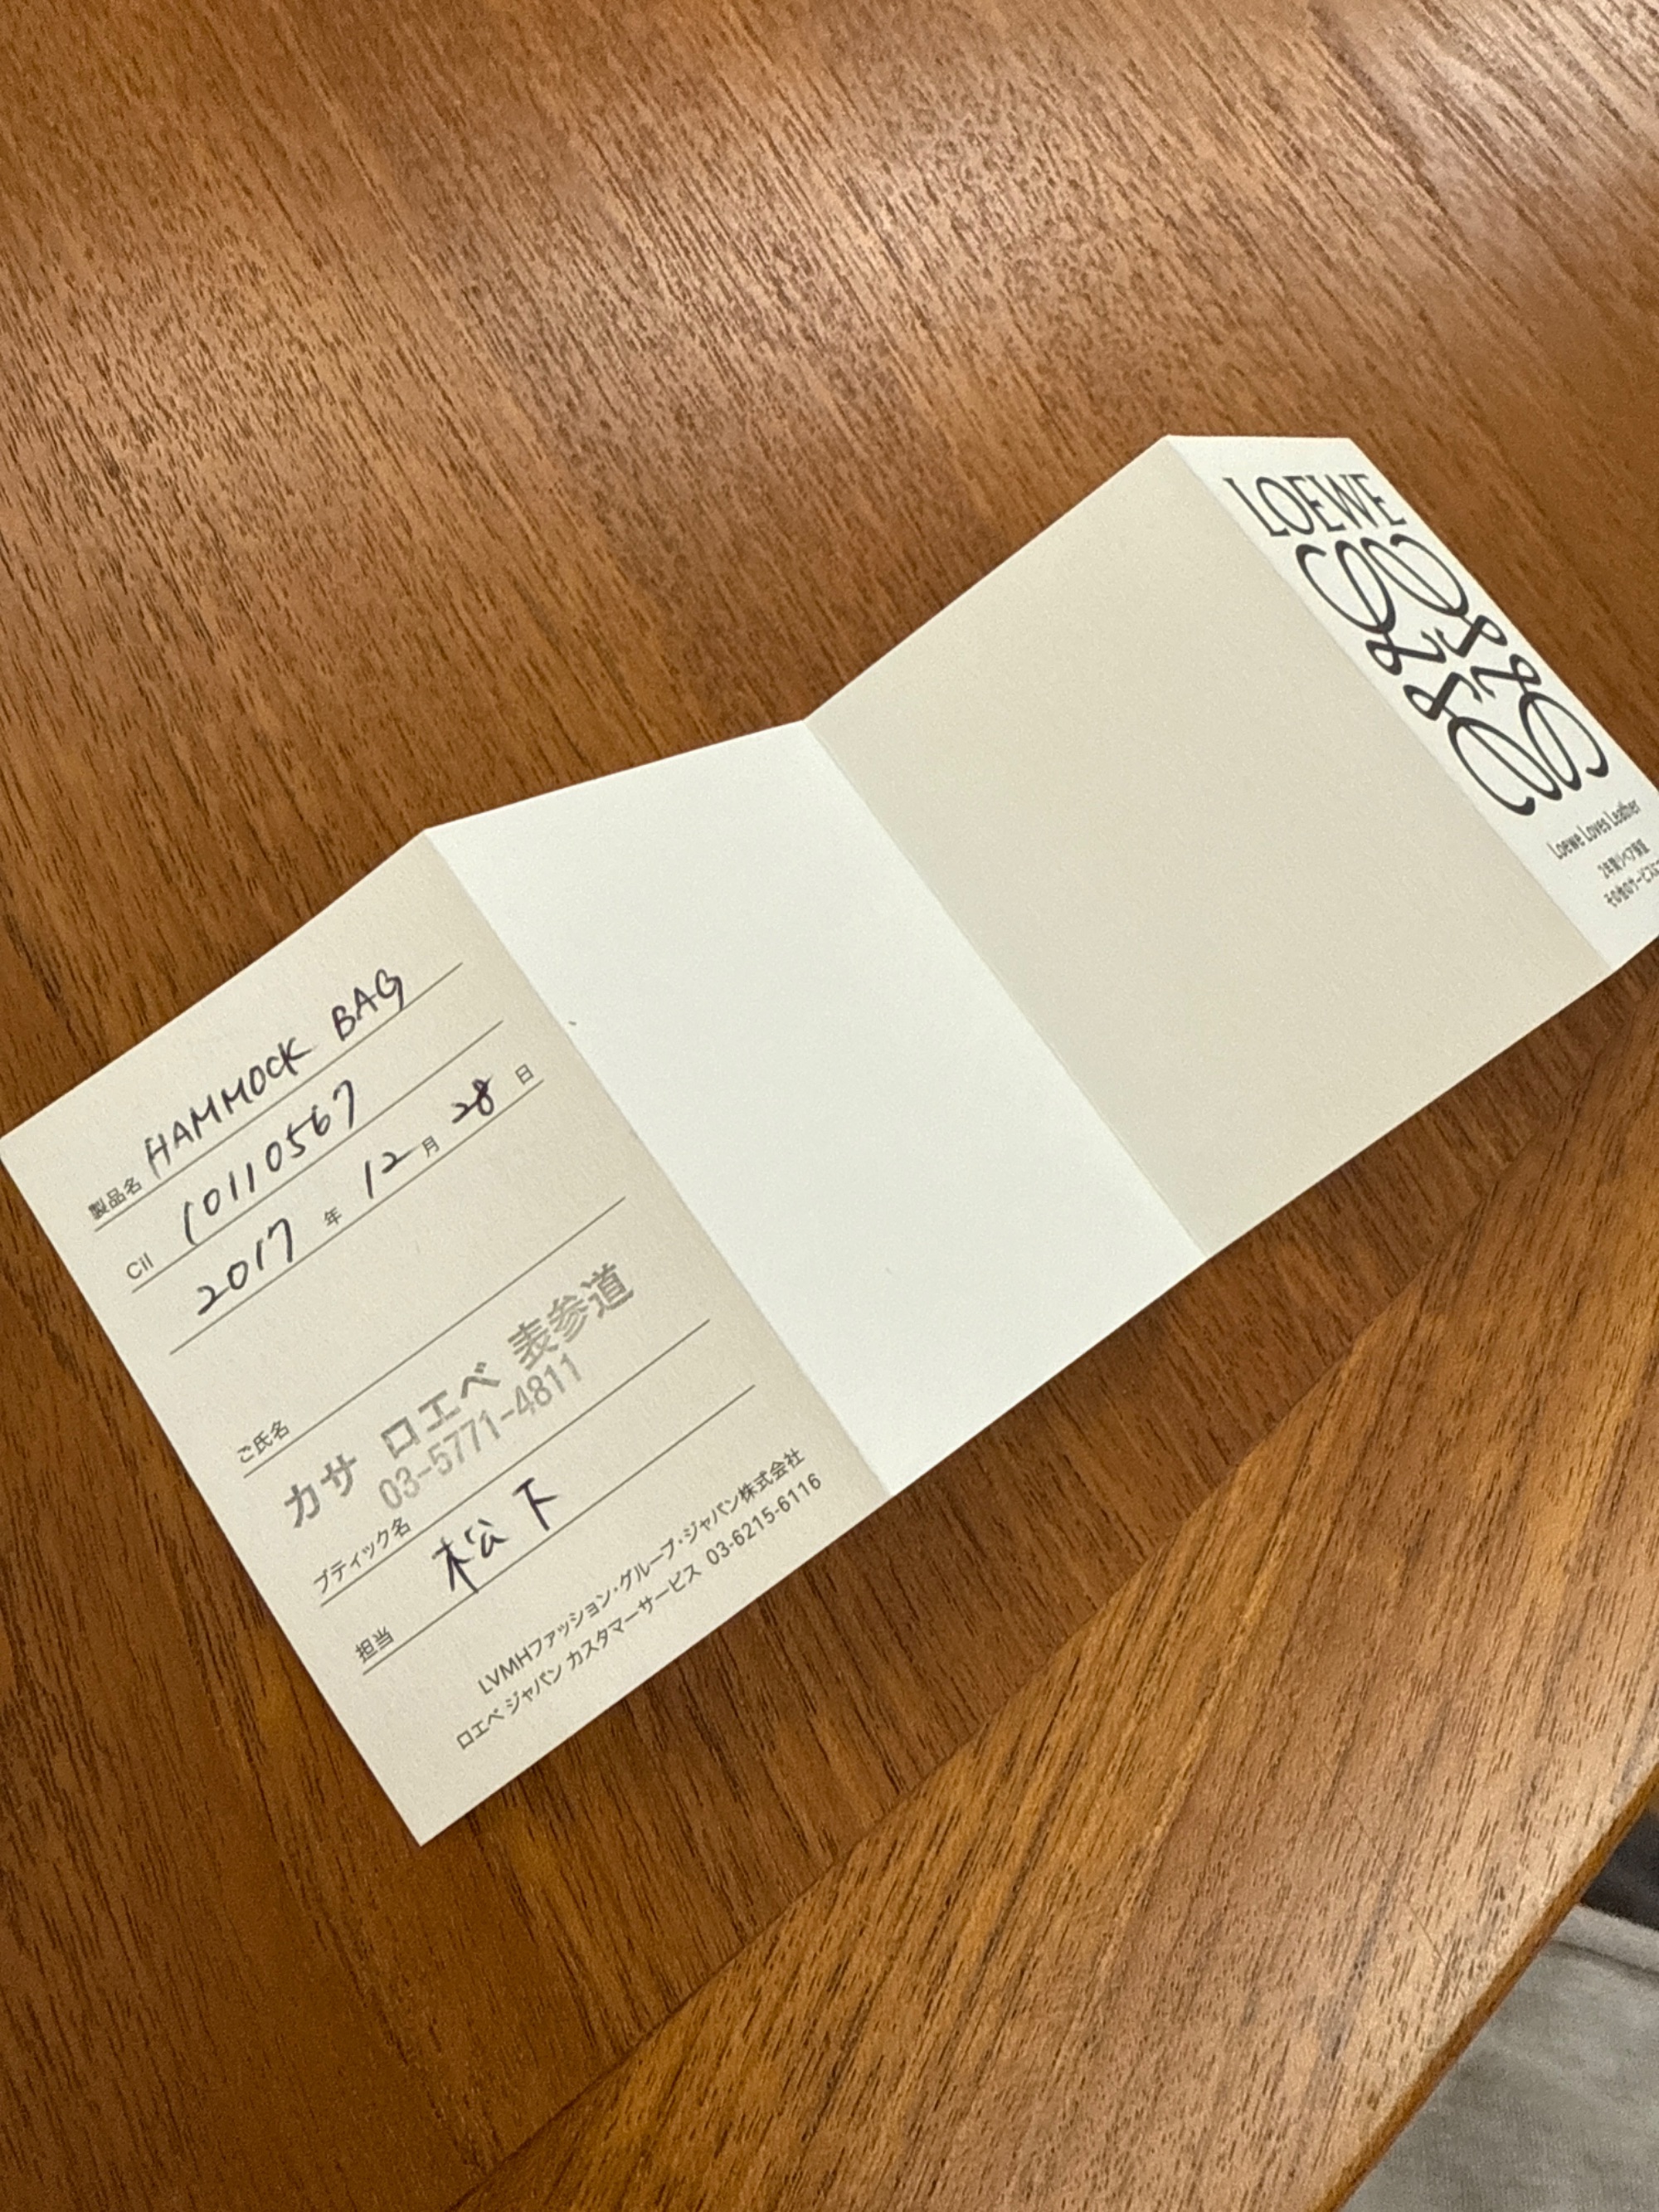 製品名 HAMMOCK BAG
Cil 10110567
2017 年 12 月 28 日
ご氏名
カサ ロエベ 表参道
03-5771-4811
ブティック名
担当 松下
LVMHファッション・グループ・ジャパン株式会社
ロエベ ジャパン カスタマーサービス 03-6215-6116
LOEWE
Loewe Loves Leather
2年間リペア保証
その他のサービスに